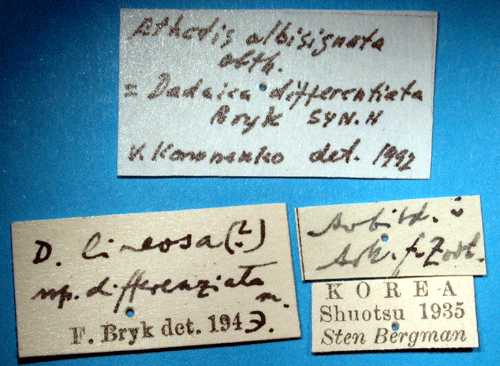 Athetis albisignata
obth.
= Dadaica differentiata
Bryk SYN.N
V. Kononenko det. 1992
D. lineosa (?)
ssp. differenziata
m.
F. Bryk det. 1943.
Arbild. i
Ark. f. Zool.
KOREA
Shuotsu 1935
Sten Bergman